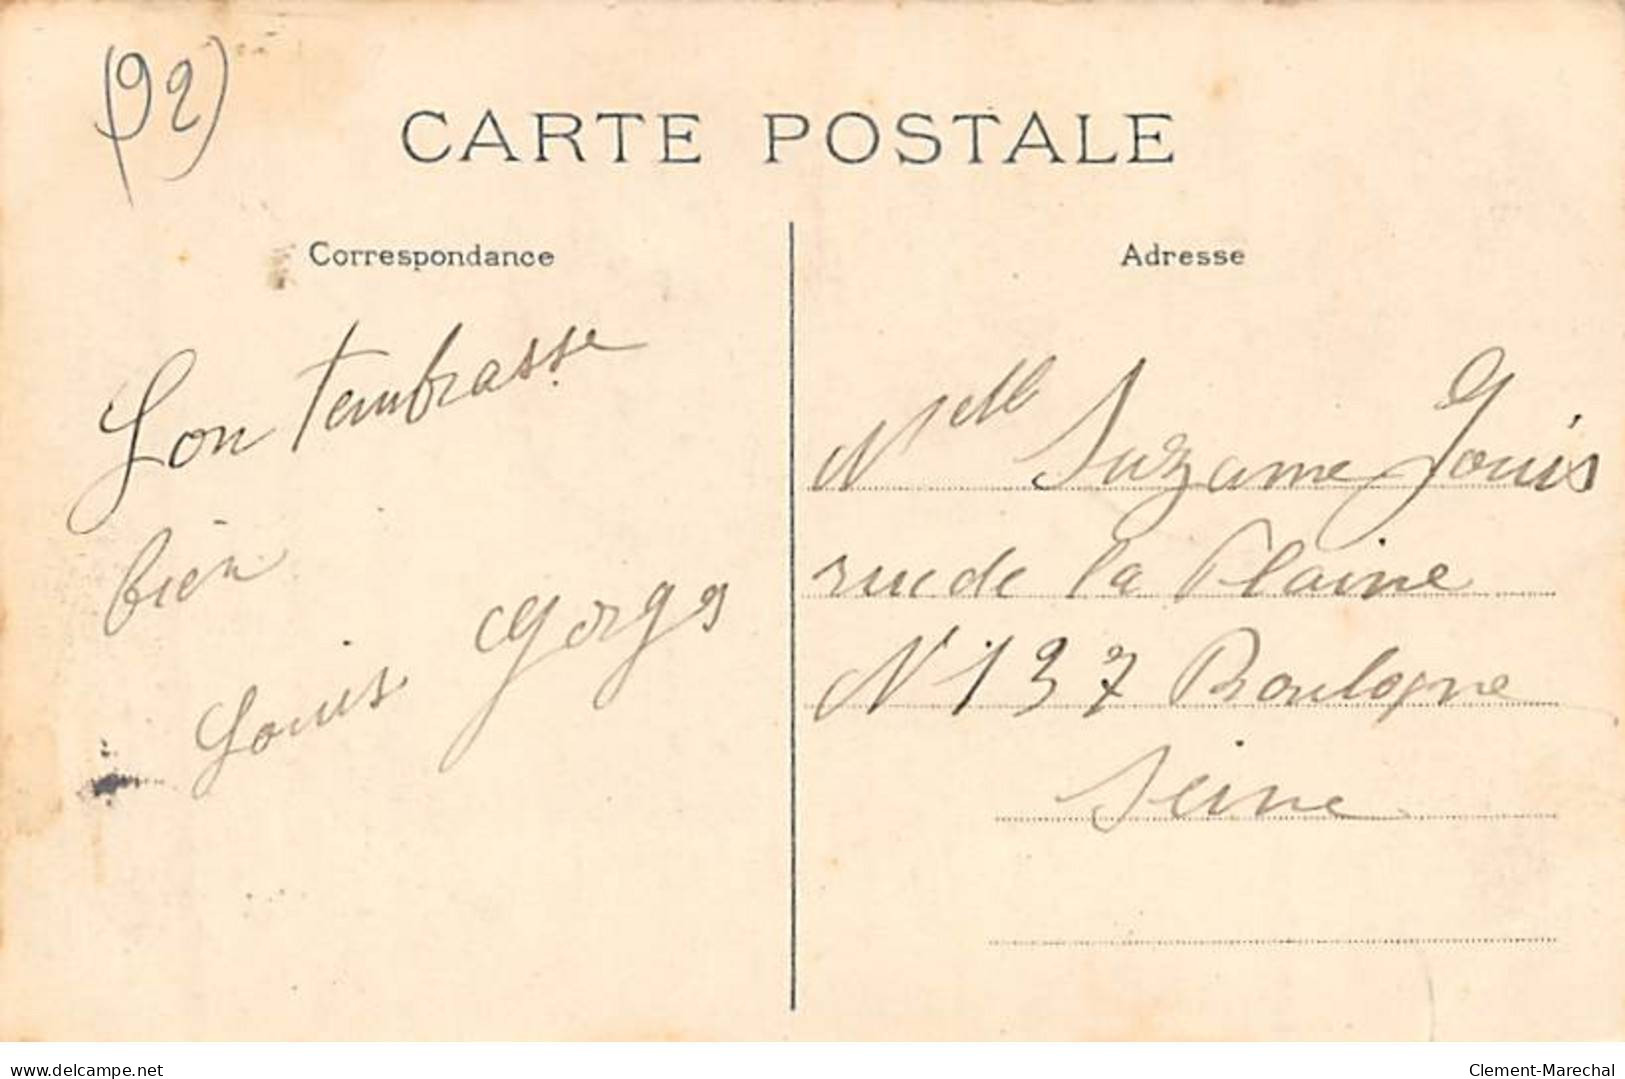 (92)
CARTE POSTALE
Correspondance
Adresse
Lon tembrasse
bien
Louis Gorges
Mdelle Suzanne Jouis
rue de la Plaine
N 137 Boulogne
Seine
www.delcampe.net
Clement-Marechal